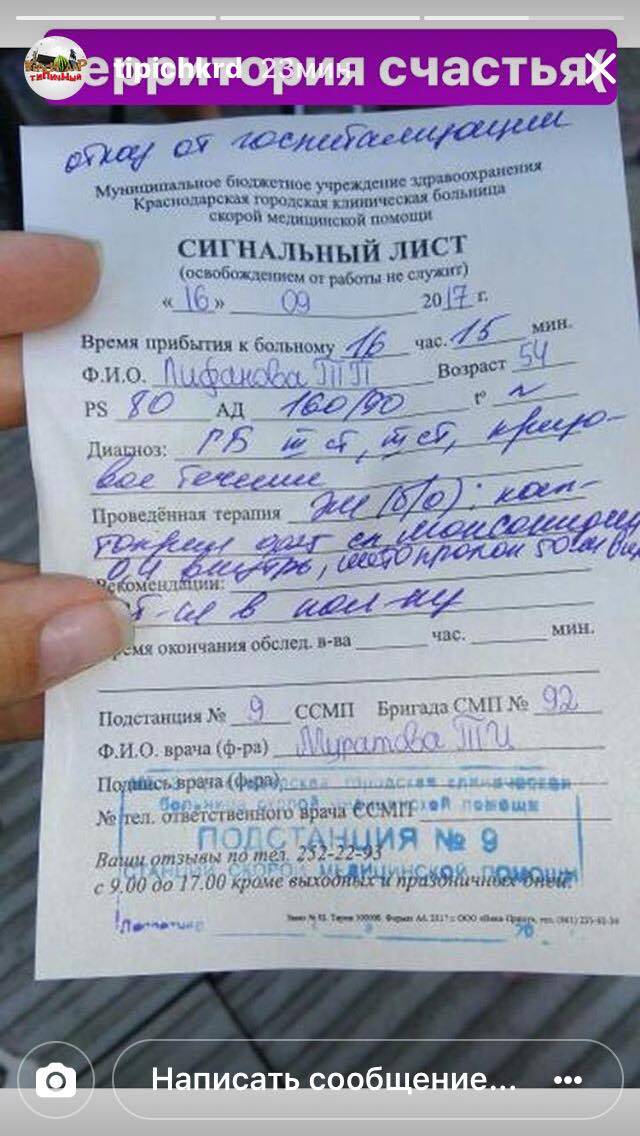 территория счастья(
tipichkrd 23мин
типичный
отказ от госпитализации
Муниципальное бюджетное учреждение здравоохранения
Краснодарская городская клиническая больница
скорой медицинской помощи
СИГНАЛЬНЫЙ ЛИСТ
(освобождением от работы не служит)
«16» 09 2017 г.
Время прибытия к больному 16 час. 15 мин.
Ф.И.О. Лифанова ТП Возраст 54
PS 80 АД 160/90 t° ~
Диагноз: ГБ III ст, III ст, кризо-
вое течение
Проведённая терапия ЭКГ (б/о): кап-
топрил
0,4 внутрь,
Рекомендации:
в пол-ку
Время окончания обслед. в-ва час. мин.
Подстанция № 9 ССМП Бригада СМП № 92
Ф.И.О. врача (ф-ра) Муратова ТИ
Подпись врача (ф-ра)
городская клиническая
больница скорой медицинской помощи
№ тел. ответственного врача ССМП
ПОДСТАНЦИЯ № 9
Ваши отзывы по тел. 252-22-93
СТАНЦИИ СКОРОЙ МЕДИЦИНСКОЙ ПОМОЩИ
с 9.00 до 17.00 кроме выходных и праздничных дней.
Написать сообщение...